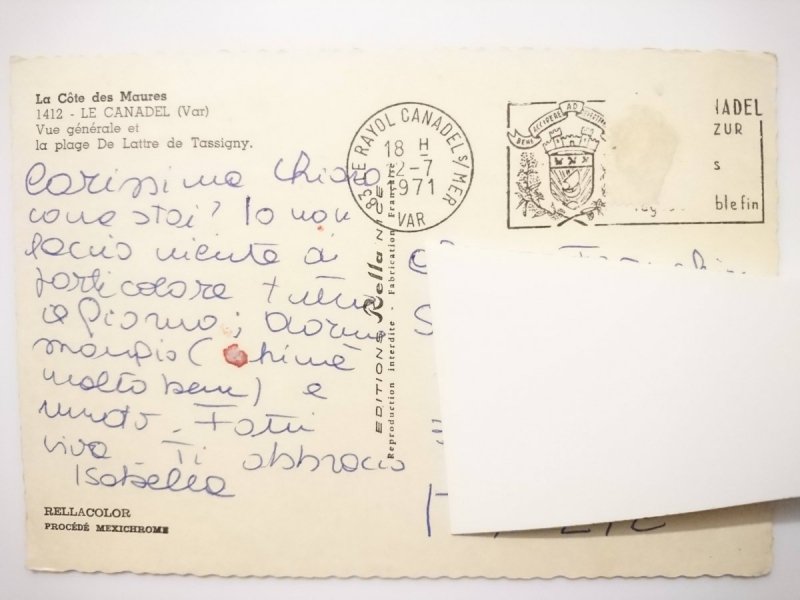 La Côte des Maures
1412 - LE CANADEL (Var)
Vue générale et
la plage De Lattre de Tassigny.
Carissima Chiara
come stai? Io non
faccio niente di
particolare tutto
il giorno; dormo
mangio (ohimè
molto bene) e
nuoto. Fatti
viva Ti abbraccio
Isabella
RELLACOLOR
PROCÉDÉ MEXICHROME
EDITIONS Rella NICE
Reproduction interdite - Fabrication Française
83 LE RAYOL CANADEL S/MER
18 H
2-7
1971
VAR
BENE ACCIPERE AD
NADEL
ZUR
S
ble fin